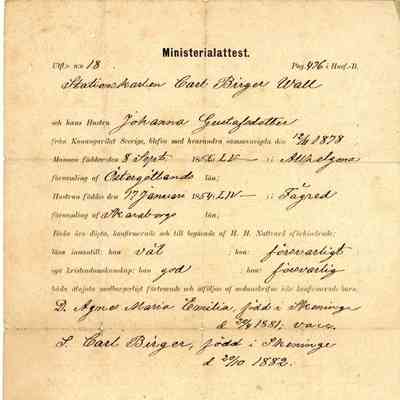 Ministerialattest.
Utfl. n:o 18. Pag. 476 i Husf.-B.
Stationskarlen Carl Birger Wall
och hans Hustru Johanna Gustafsdotter
från Konungariket Sverige, blefvo med hvarandra sammanvigda den 12/4 1878
Mannen föddes den 8 Sept. LIV i Allhelgona
församling af Östergötlands län;
Hustrun föddes den 17 Januari 1854; LIV i Fägred
församling af Skaraborgs län;
Båda äro döpta, konfirmerade och till begående af H. H. Nattvard oförhindrade;
läsa innantill: han väl ; hon: försvarligt
ega kristendomskunskap: han god ; hon: försvarlig
båda åtnjuta medborgerligt förtroende och åtföljas af nedanskrifne icke konfirmerade barn.
D. Agnes Maria Emilia, född i Skeninge
d. 1881; vacc.
S. Carl Birger, född i Skeninge
d. 20/10 1882.